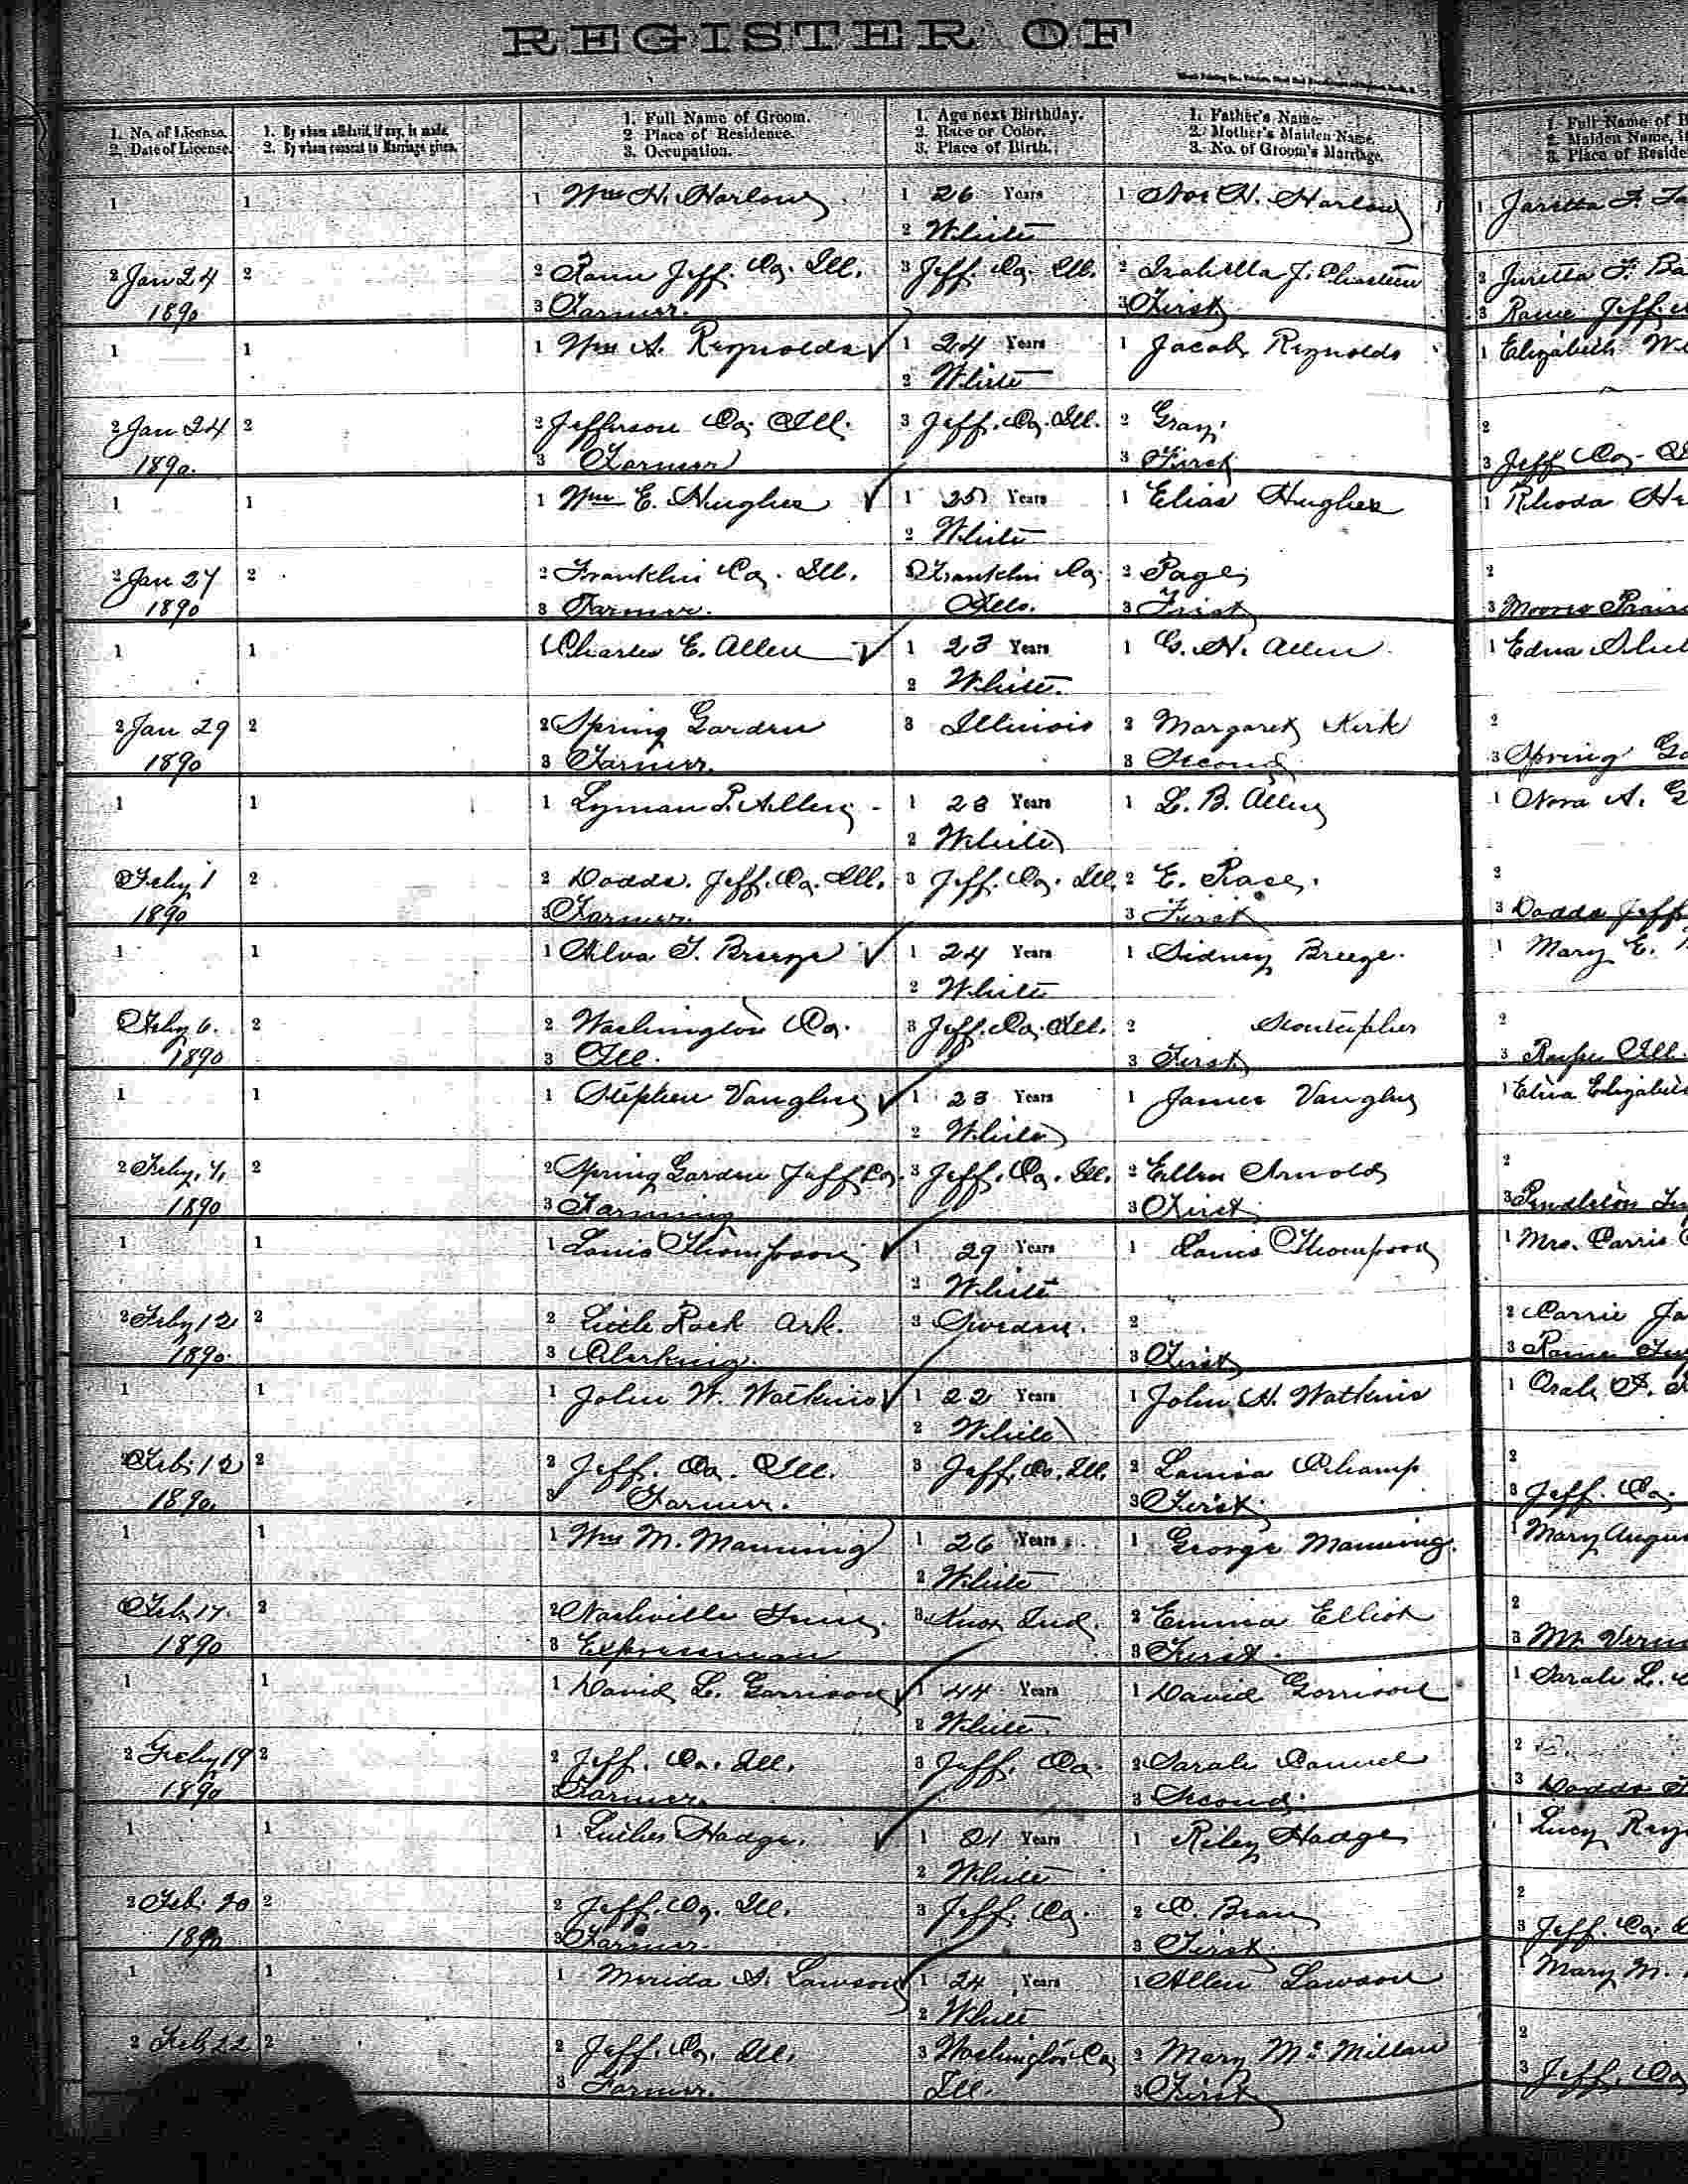 REGISTER OF
1. No. of License.
2. Date of License.
1. By whom affidavit, if any, is made.
2. By whom consent to Marriage given.
1. Full Name of Groom.
2. Place of Residence.
3. Occupation.
1. Age next Birthday.
2. Race or Color.
3. Place of Birth.
1. Father's Name.
2. Mother's Maiden Name.
3. No. of Groom's Marriage.
1. Full Name of B
2. Maiden Name, i
3. Place of Reside
1 1 1 Wm H. Harlow 1 26 Years 1 H. Harlow 1 Juretta F.
2 White
2 Jan 24 2 2 Rome Jeff. Co. Ill. 3 Jeff. Co. Ill. 2 Isabella J. 2 Juretta F. Ba
1890 3 Farmer. 3 First 3 Rome Jeff.
1 1 1 Wm A. Reynolds 1 24 Years 1 Jacob Reynolds 1 Elizabeth W
2 White
2 Jan 24 2 2 Jefferson Co. Ill. 3 Jeff. Co. Ill. 2 Gray. 2
1890. 3 Farmer 3 First 3 Jeff Co.
1 1 1 Wm E. Hughes 1 25 Years 1 Elias Hughes 1 Rhoda
2 White
2 Jan 27 2 2 Franklin Co. Ill. 3 Franklin Co. 2 Page 2
1890 3 Farmer. Ills. 3 First 3 Moores Prair
1 1 1 Charles E. Allen 1 23 Years 1 G. H. Allen 1 Edna
2 White.
2 Jan 29 2 2 Spring Garden 3 Illinois 2 Margaret Kirk 2
1890 3 Farmer. 3 Second 3 Spring Ga
1 1 1 Lyman P. Allen 1 23 Years 1 L. B. Allen 1 Nora A. G
2 White
Feby 1 2 2 Dodds. Jeff. Co. Ill. 3 Jeff. Co. Ill. 2 E. 2
1890 3 Farmer. 3 First 3 Dodds Jeff
1 1 1 Alva T. Breeze 1 24 Years 1 Sidney Breeze. 1 Mary E.
2 White
Feby 6. 2 2 Washington Co. 3 Jeff. Co. Ill. 2 2
1890 3 Ill. 3 First 3 Ill.
1 1 1 Stephen Vaughn 1 23 Years 1 James Vaughn 1 Eliza Elizabe
2 White
2 Feby. 2 2 Spring Garden Jeff Co. 3 Jeff. Co. Ill. 2 Ellen Arnold 2
1890 3 Farming 3 First 3 Pendleton
1 1 1 Louis Thompson 1 29 Years 1 Louis Thompson 1 Mrs. Carrie
2 White
2 Feby 12 2 2 Little Rock Ark. 3 Sweden. 2 2 Carrie
1890. 3 Clerking. 3 First 3 Rome
1 1 1 John W. Watkins 1 22 Years 1 John H. Watkins 1
2 White
2 Feb. 12 2 2 Jeff. Co. Ill. 3 Jeff. Co. Ill. 2 Louisa 2
1890. 3 Farmer. 3 First. 3 Jeff. Co.
1 1 1 Wm M. Manning 1 26 Years 1 George Manning. 1 Mary Augus
2 White
Feb 17. 2 2 Nashville Tenn. 3 Knox Ind. 2 Emma Elliot 2
1890 3 Expressman 3 First. 3 Mt. Vern
1 1 1 David L. Garrison 1 44 Years 1 David Garrison 1 Sarah L.
2 White.
2 Feby 19 2 2 Jeff. Co. Ill. 3 Jeff. Co. 2 Sarah 2
1890 3 Farmer. 3 Second. 3 Dodds
1 1 1 Luther Hodge. 1 21 Years 1 Riley Hodge 1 Lucy Rey
2 White
2 Feb. 20 2 2 Jeff. Co. Ill. 3 Jeff. Co. 2 C. Bean 2
1890 3 Farmer. 3 First. 3 Jeff. Co.
1 1 1 Merida A. Lawson 1 24 Years 1 Allen Lawson 1 Mary M.
2 White
2 Feb 22 2 2 Jeff. Co. Ill. 3 Washington Co. 2 Mary McMillan 2
3 Farmer. Ill. 3 First 3 Jeff. Co